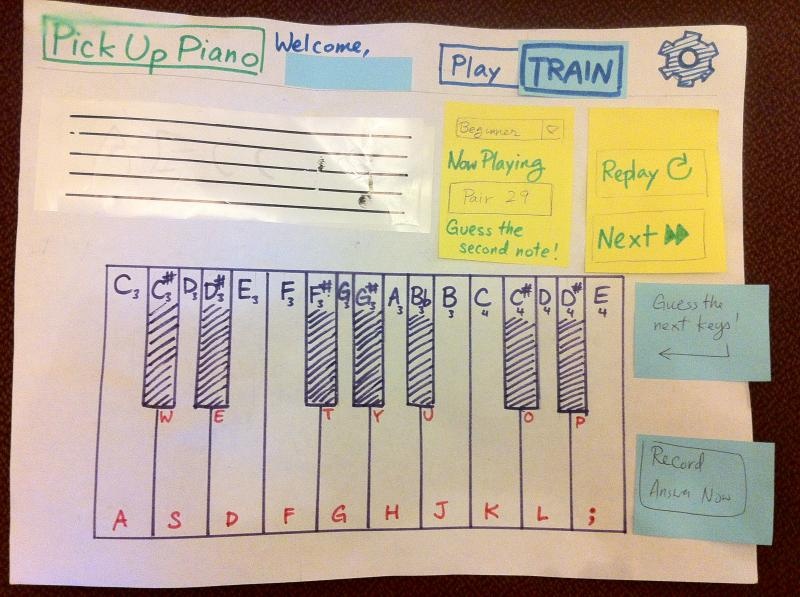 Pick Up Piano
Welcome,
Play
TRAIN
Beginner
Now Playing
Pair 29
Guess the
second note!
Replay
Next
C3 C#3 D3 D#3 E3 F3 F#3 G3 G#3 A3 Bb3 B3 C4 C#4 D4 D#4 E4
W E T Y U O P
A S D F G H J K L ;
Guess the
next keys!
Record
Answer Now